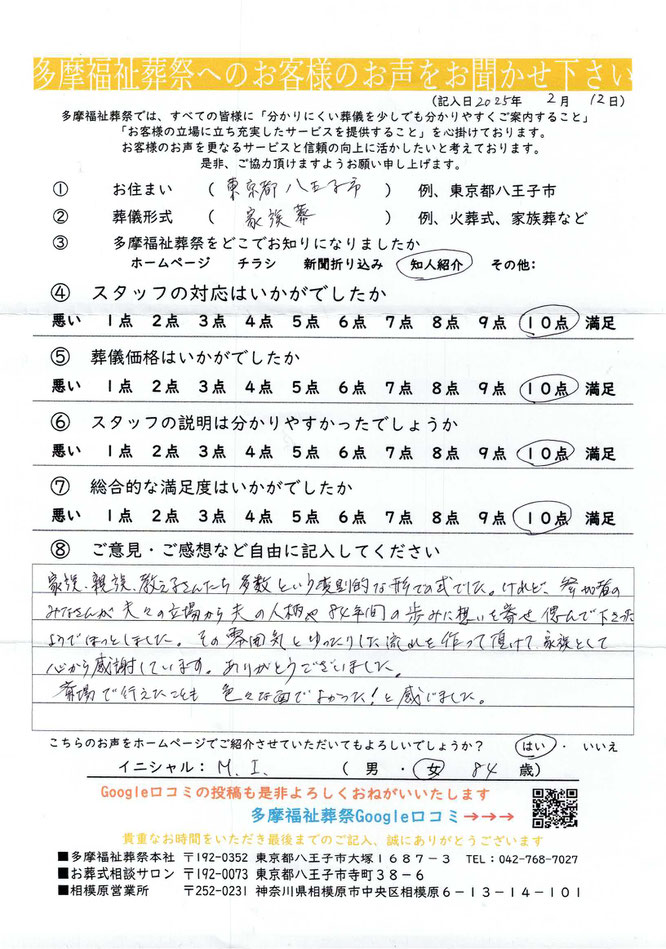 多摩福祉葬祭へのお客様のお声をお聞かせ下さい
(記入日2025年 2月 12日)
多摩福祉葬祭では、すべての皆様に「分かりにくい葬儀を少しでも分かりやすくご案内すること」
「お客様の立場に立ち充実したサービスを提供すること」を心掛けております。
お客様のお声を更なるサービスと信頼の向上に活かしたいと考えております。
是非、ご協力頂けますようお願い申し上げます。
① お住まい (東京都八王子市) 例、東京都八王子市
② 葬儀形式 (家族葬) 例、火葬式、家族葬など
③ 多摩福祉葬祭をどこでお知りになりましたか
ホームページ チラシ 新聞折り込み 知人紹介 その他:
④ スタッフの対応はいかがでしたか
悪い 1点 2点 3点 4点 5点 6点 7点 8点 9点 10点 満足
⑤ 葬儀価格はいかがでしたか
悪い 1点 2点 3点 4点 5点 6点 7点 8点 9点 10点 満足
⑥ スタッフの説明は分かりやすかったでしょうか
悪い 1点 2点 3点 4点 5点 6点 7点 8点 9点 10点 満足
⑦ 総合的な満足度はいかがでしたか
悪い 1点 2点 3点 4点 5点 6点 7点 8点 9点 10点 満足
⑧ ご意見・ご感想など自由に記入してください
家族、親族、教え子さんたち多数という変則的な形での式でした。けれど、参加者の
みなさんが夫々の立場から夫の人柄や84年間の歩みに想いを寄せ偲んで下さった
ようでほっとしました。その雰囲気とゆったりした流れを作って頂けて家族として
心から感謝しています。ありがとうございました。
斎場で行えたことも色々な面でよかった!と感じました。
こちらのお声をホームページでご紹介させていただいてもよろしいでしょうか? はい ・ いいえ
イニシャル: M. I. (男・女 84 歳)
Google口コミの投稿も是非よろしくおねがいいたします
多摩福祉葬祭Google口コミ→→→
貴重なお時間をいただき最後までのご記入、誠にありがとうございます
■多摩福祉葬祭本社 〒192-0352 東京都八王子市大塚1687-3 TEL:042-768-7027
■お葬式相談サロン 〒192-0073 東京都八王子市寺町38-6
■相模原営業所 〒252-0231 神奈川県相模原市中央区相模原6-13-14-101